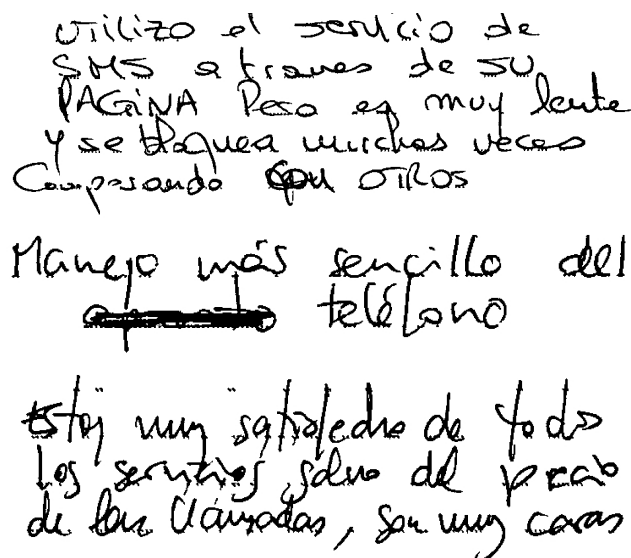 UTILIZO el servicio de
SMS a traves de SU
PAGINA Pero es muy lente
y se bloquea muchas veces
Comparando CON OTROS
Manejo más sencillo del
teléfono
Estoy muy satisfecho de todos
los servicios, salvo del precio
de las llamadas, son muy caras